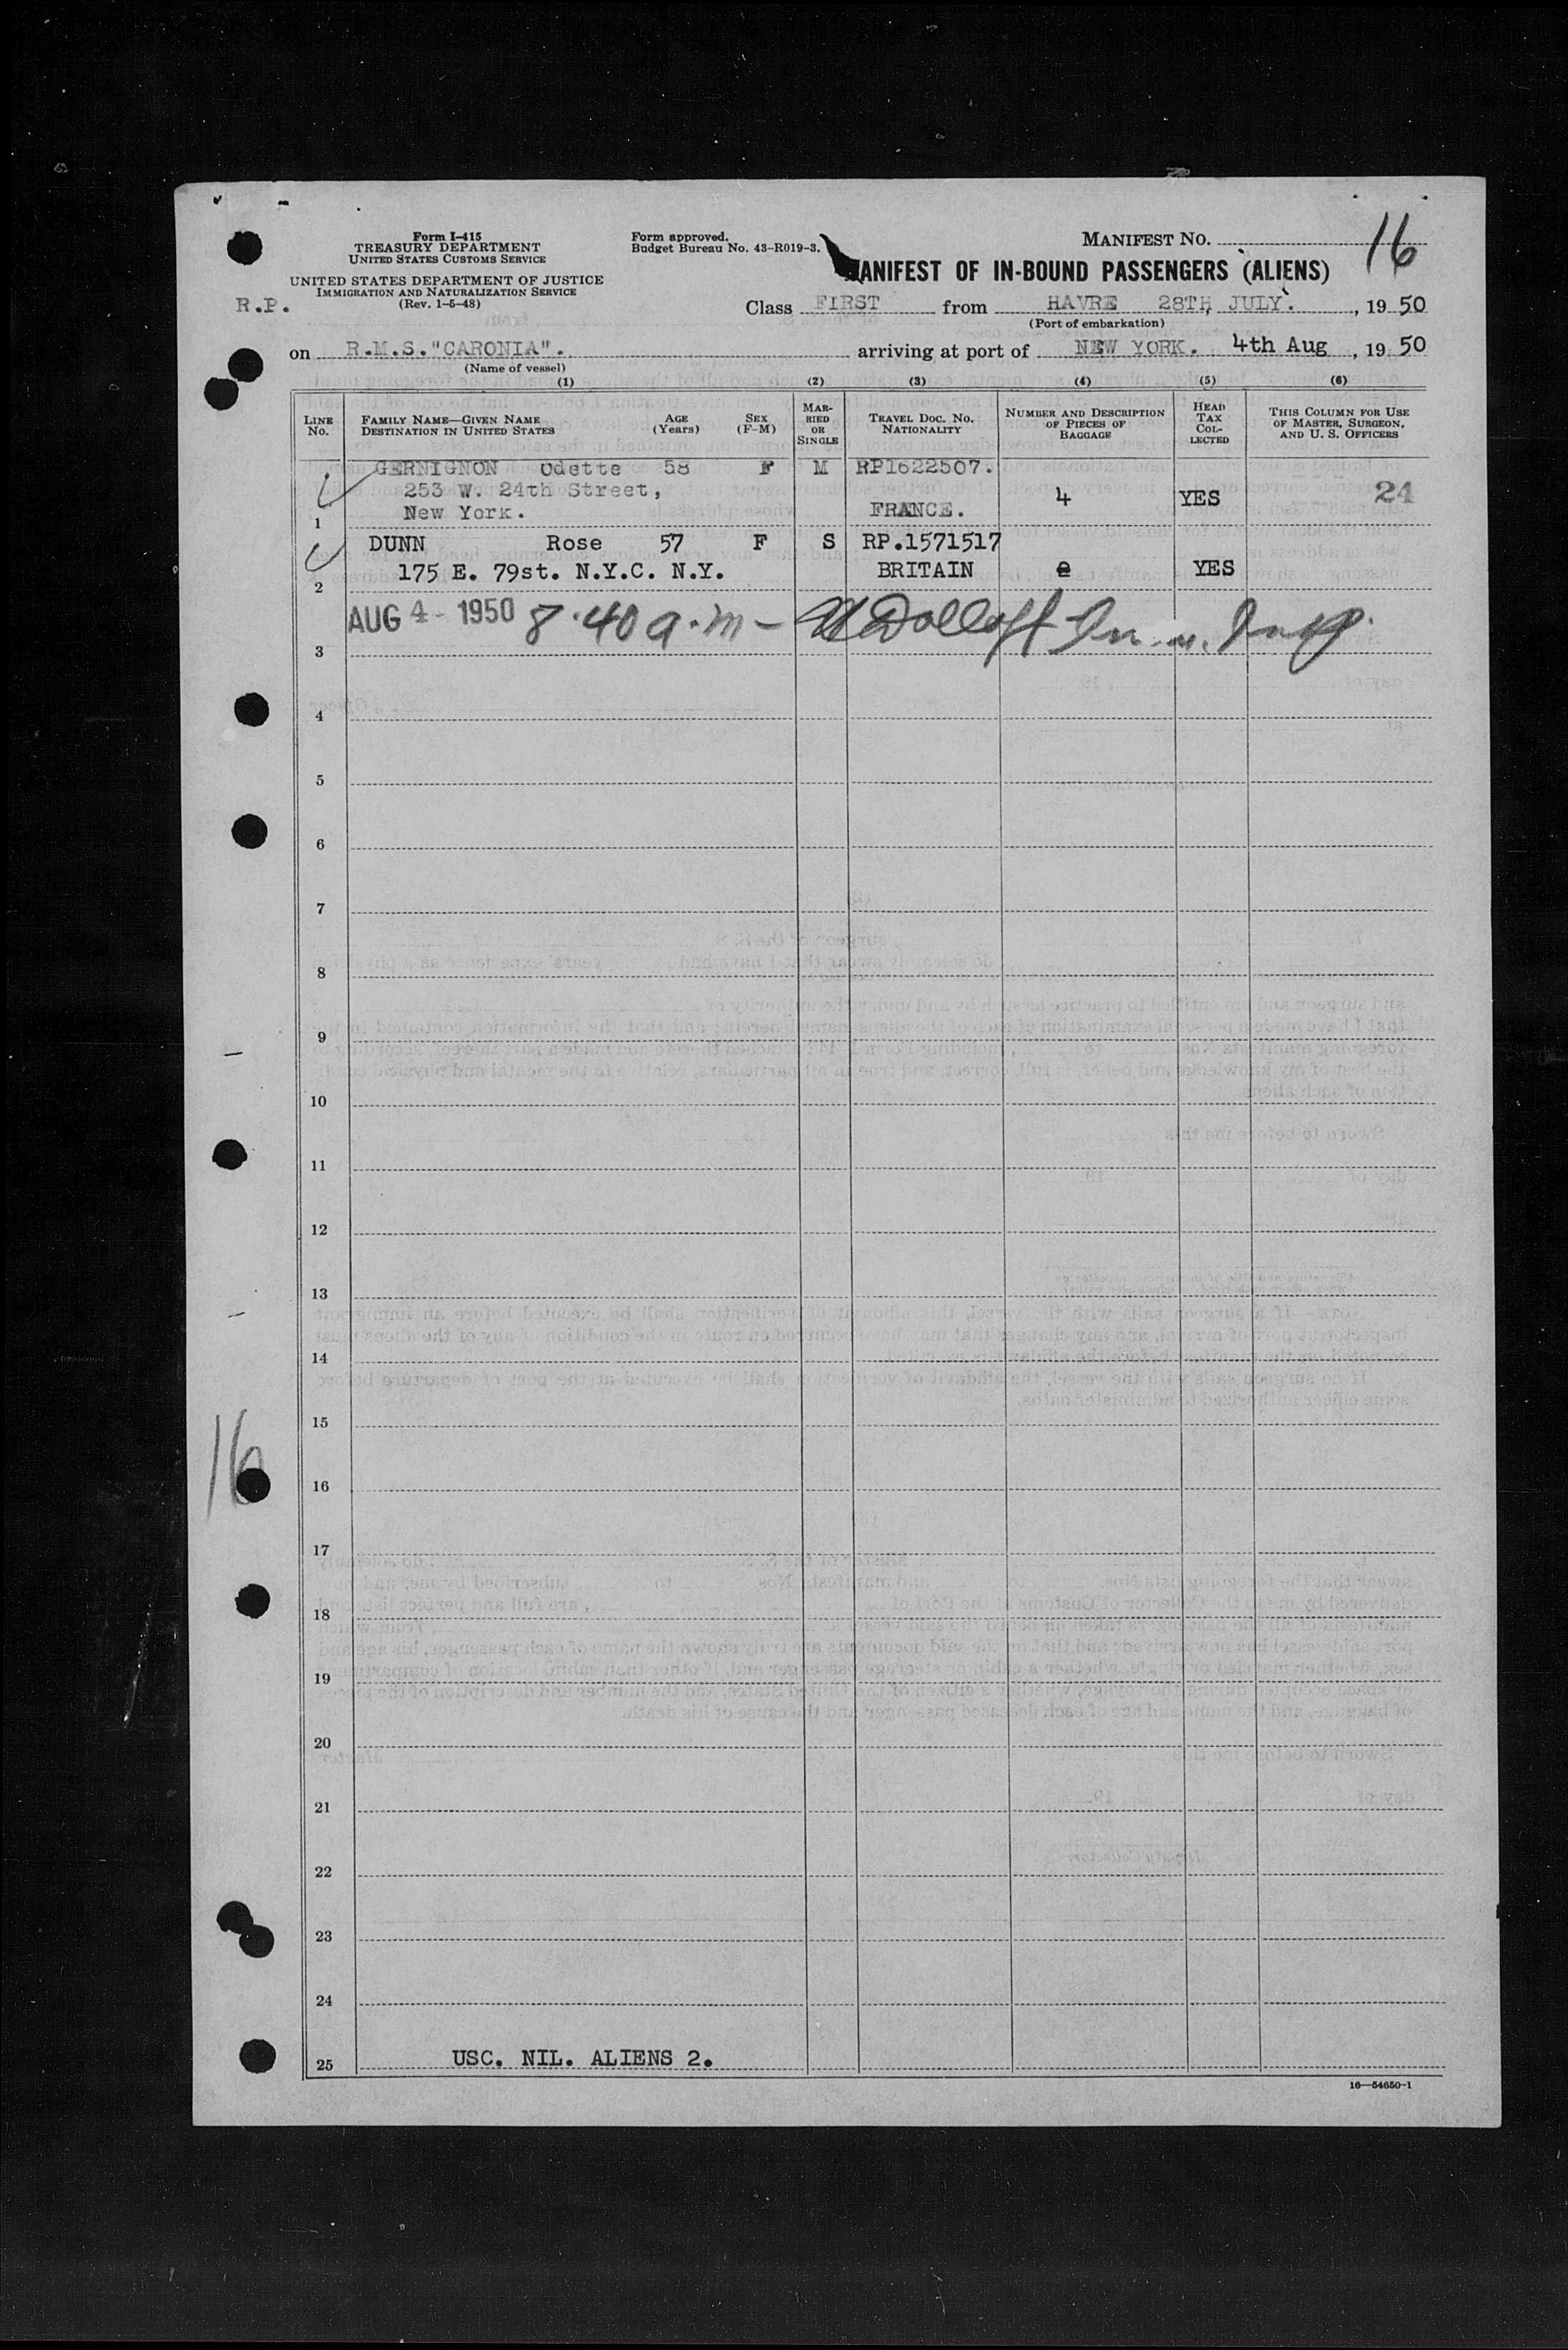 Form I-415
TREASURY DEPARTMENT
UNITED STATES CUSTOMS SERVICE
UNITED STATES DEPARTMENT OF JUSTICE
IMMIGRATION AND NATURALIZATION SERVICE
(Rev. 1-5-48)
R.P.
Form approved.
Budget Bureau No. 43-R019-3.
MANIFEST No. 16
ANIFEST OF IN-BOUND PASSENGERS (ALIENS)
Class FIRST from HAVRE 28TH, JULY. , 19 50
(Port of embarkation)
on R.M.S."CARONIA". arriving at port of NEW YORK. 4th Aug , 19 50
(Name of vessel)
(1) (2) (3) (4) (5) (6)
LINE No.
FAMILY NAME—GIVEN NAME
DESTINATION IN UNITED STATES
AGE (Years)
SEX (F-M)
MARRIED OR SINGLE
TRAVEL DOC. NO.
NATIONALITY
NUMBER AND DESCRIPTION OF PIECES OF BAGGAGE
HEAD TAX COLLECTED
THIS COLUMN FOR USE OF MASTER, SURGEON, AND U. S. OFFICERS
GERNIGNON Odette 58 F M RP1622507.
253 W. 24th Street, 4 YES 24
1 New York. FRANCE.
DUNN Rose 57 F S RP.1571517
2 175 E. 79st. N.Y.C. N.Y. BRITAIN YES
AUG 4 - 1950 8.40 a.m -
3
4
5
6
7
8
9
10
11
12
13
14
15
16
16
17
18
19
20
21
22
23
24
25 USC. NIL. ALIENS 2.
16—54650-1